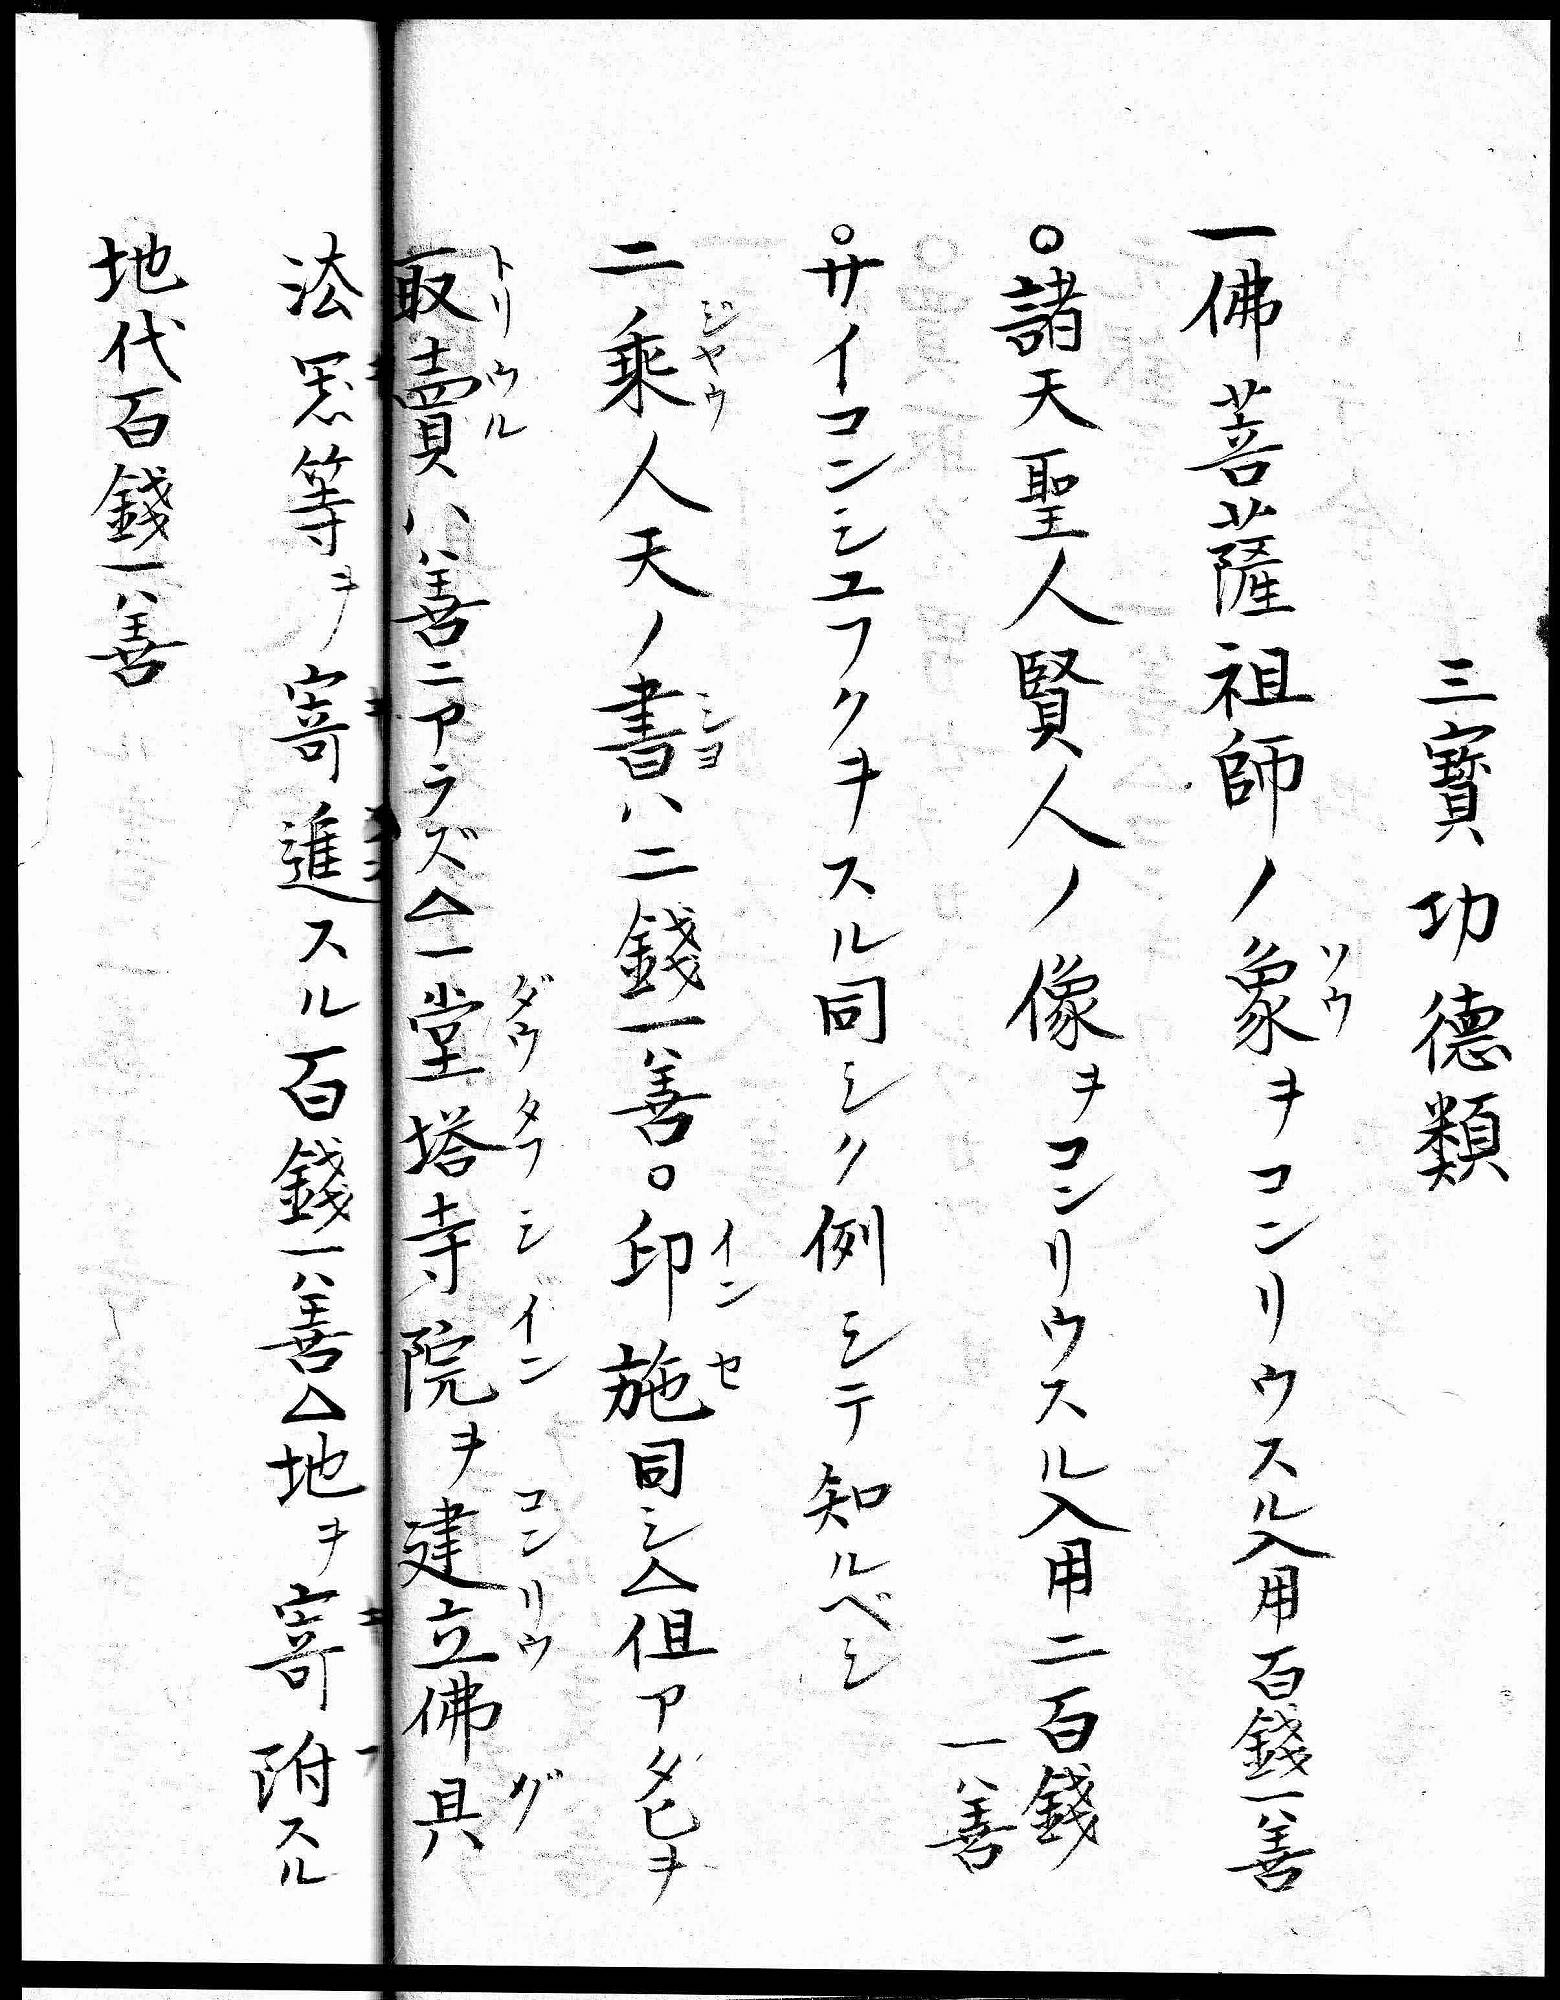 三寶功德類
一佛菩薩祖師ノ象ヲコンリウスル入用百錢一善
○諸天聖人賢人ノ像ヲコンリウスル入用二百錢
一善
○サイコンシユフクヲキスル同シク例シテ知ルベシ
二乘人天ノ書ハ二錢一善○印施同シ△但アタヒヲ
取賣ハ善ニアラズ△一堂塔寺院ヲ建立佛具
法器等ヲ寄進スル百錢一善△地ヲ寄附スル
地代百錢一善
ソウ
ジヤウ
シヨ
インセ
トリウル
ダウタフシ゛インコンリウグ